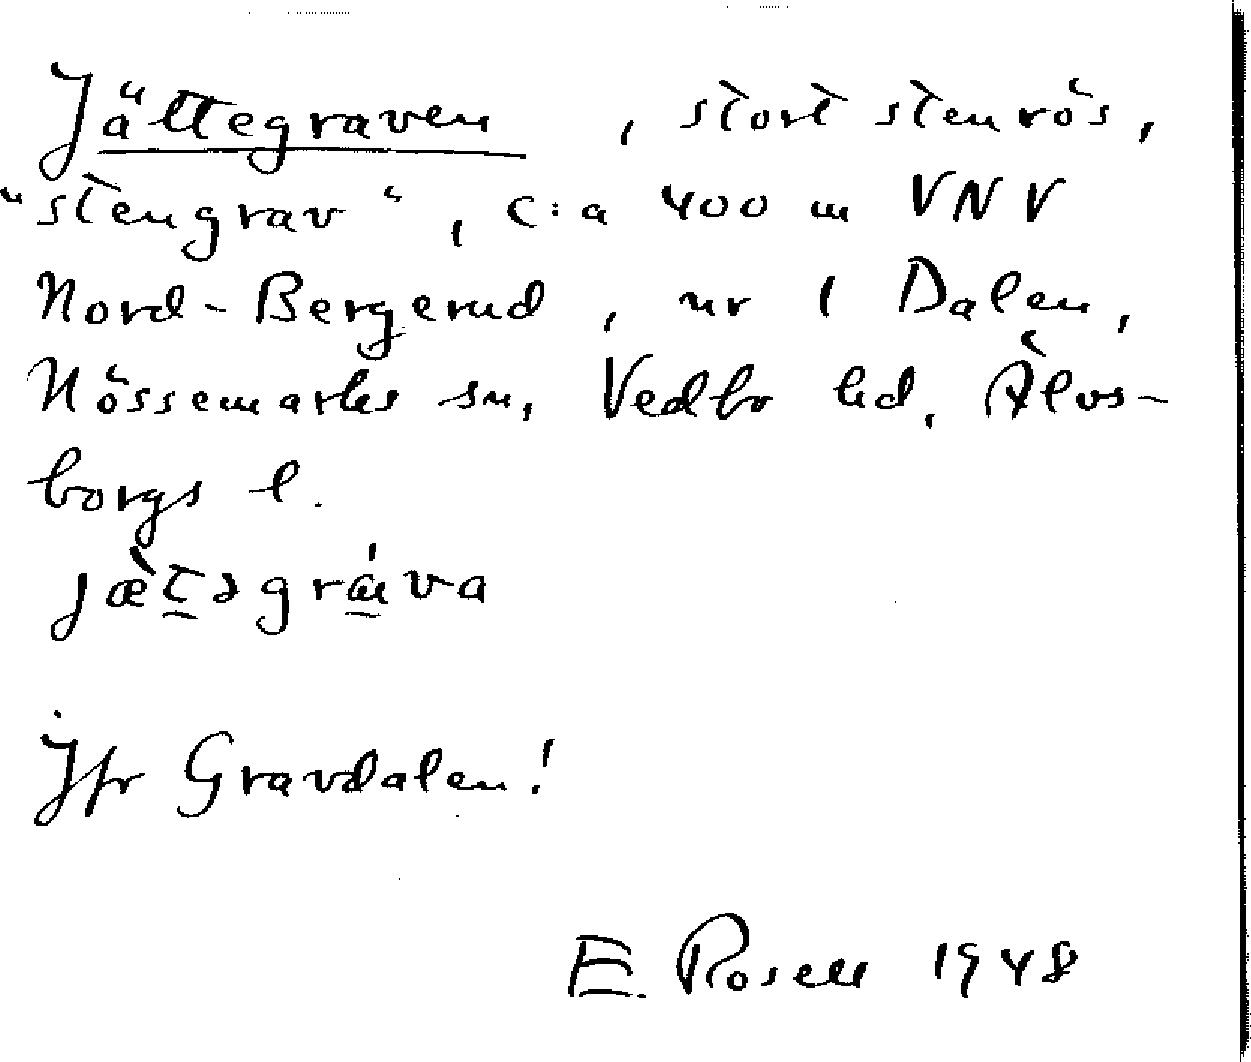 Jättegraven , stort stenrös,
"stengrav", c:a 400 m VNV
Nord-Bergerud, nr 1 Dalen,
Nössemarks sn, Vedbo hd, Älvs-
borgs l.
jæ̀t̲əgrá̲va
Jfr Gravdalen!
E. Rosell 1948